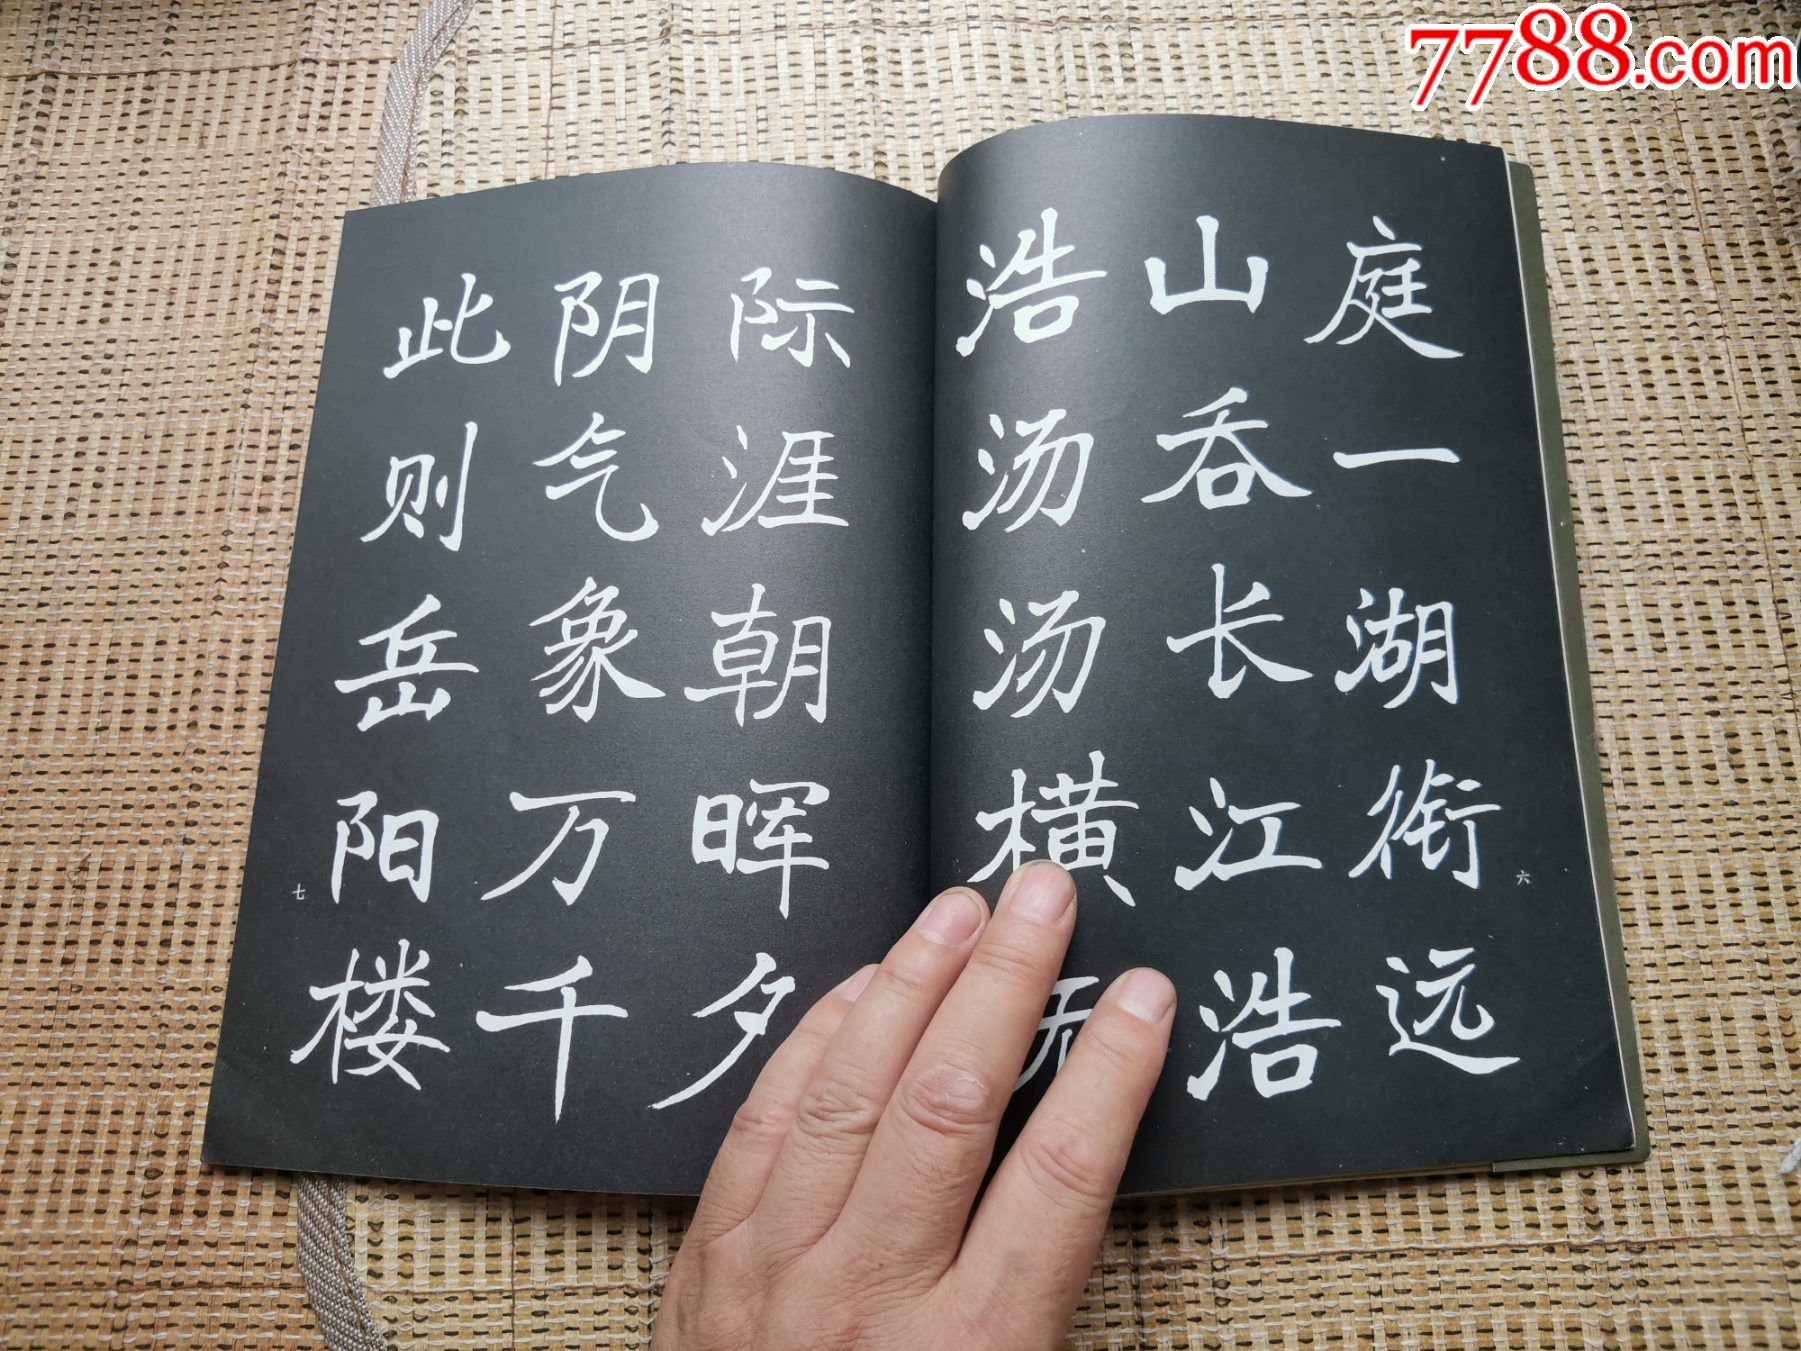 7788.com
庭一湖衔远
山吞长江浩
浩汤汤横无
六
际涯朝晖夕
阴气象万千
此则岳阳楼
七